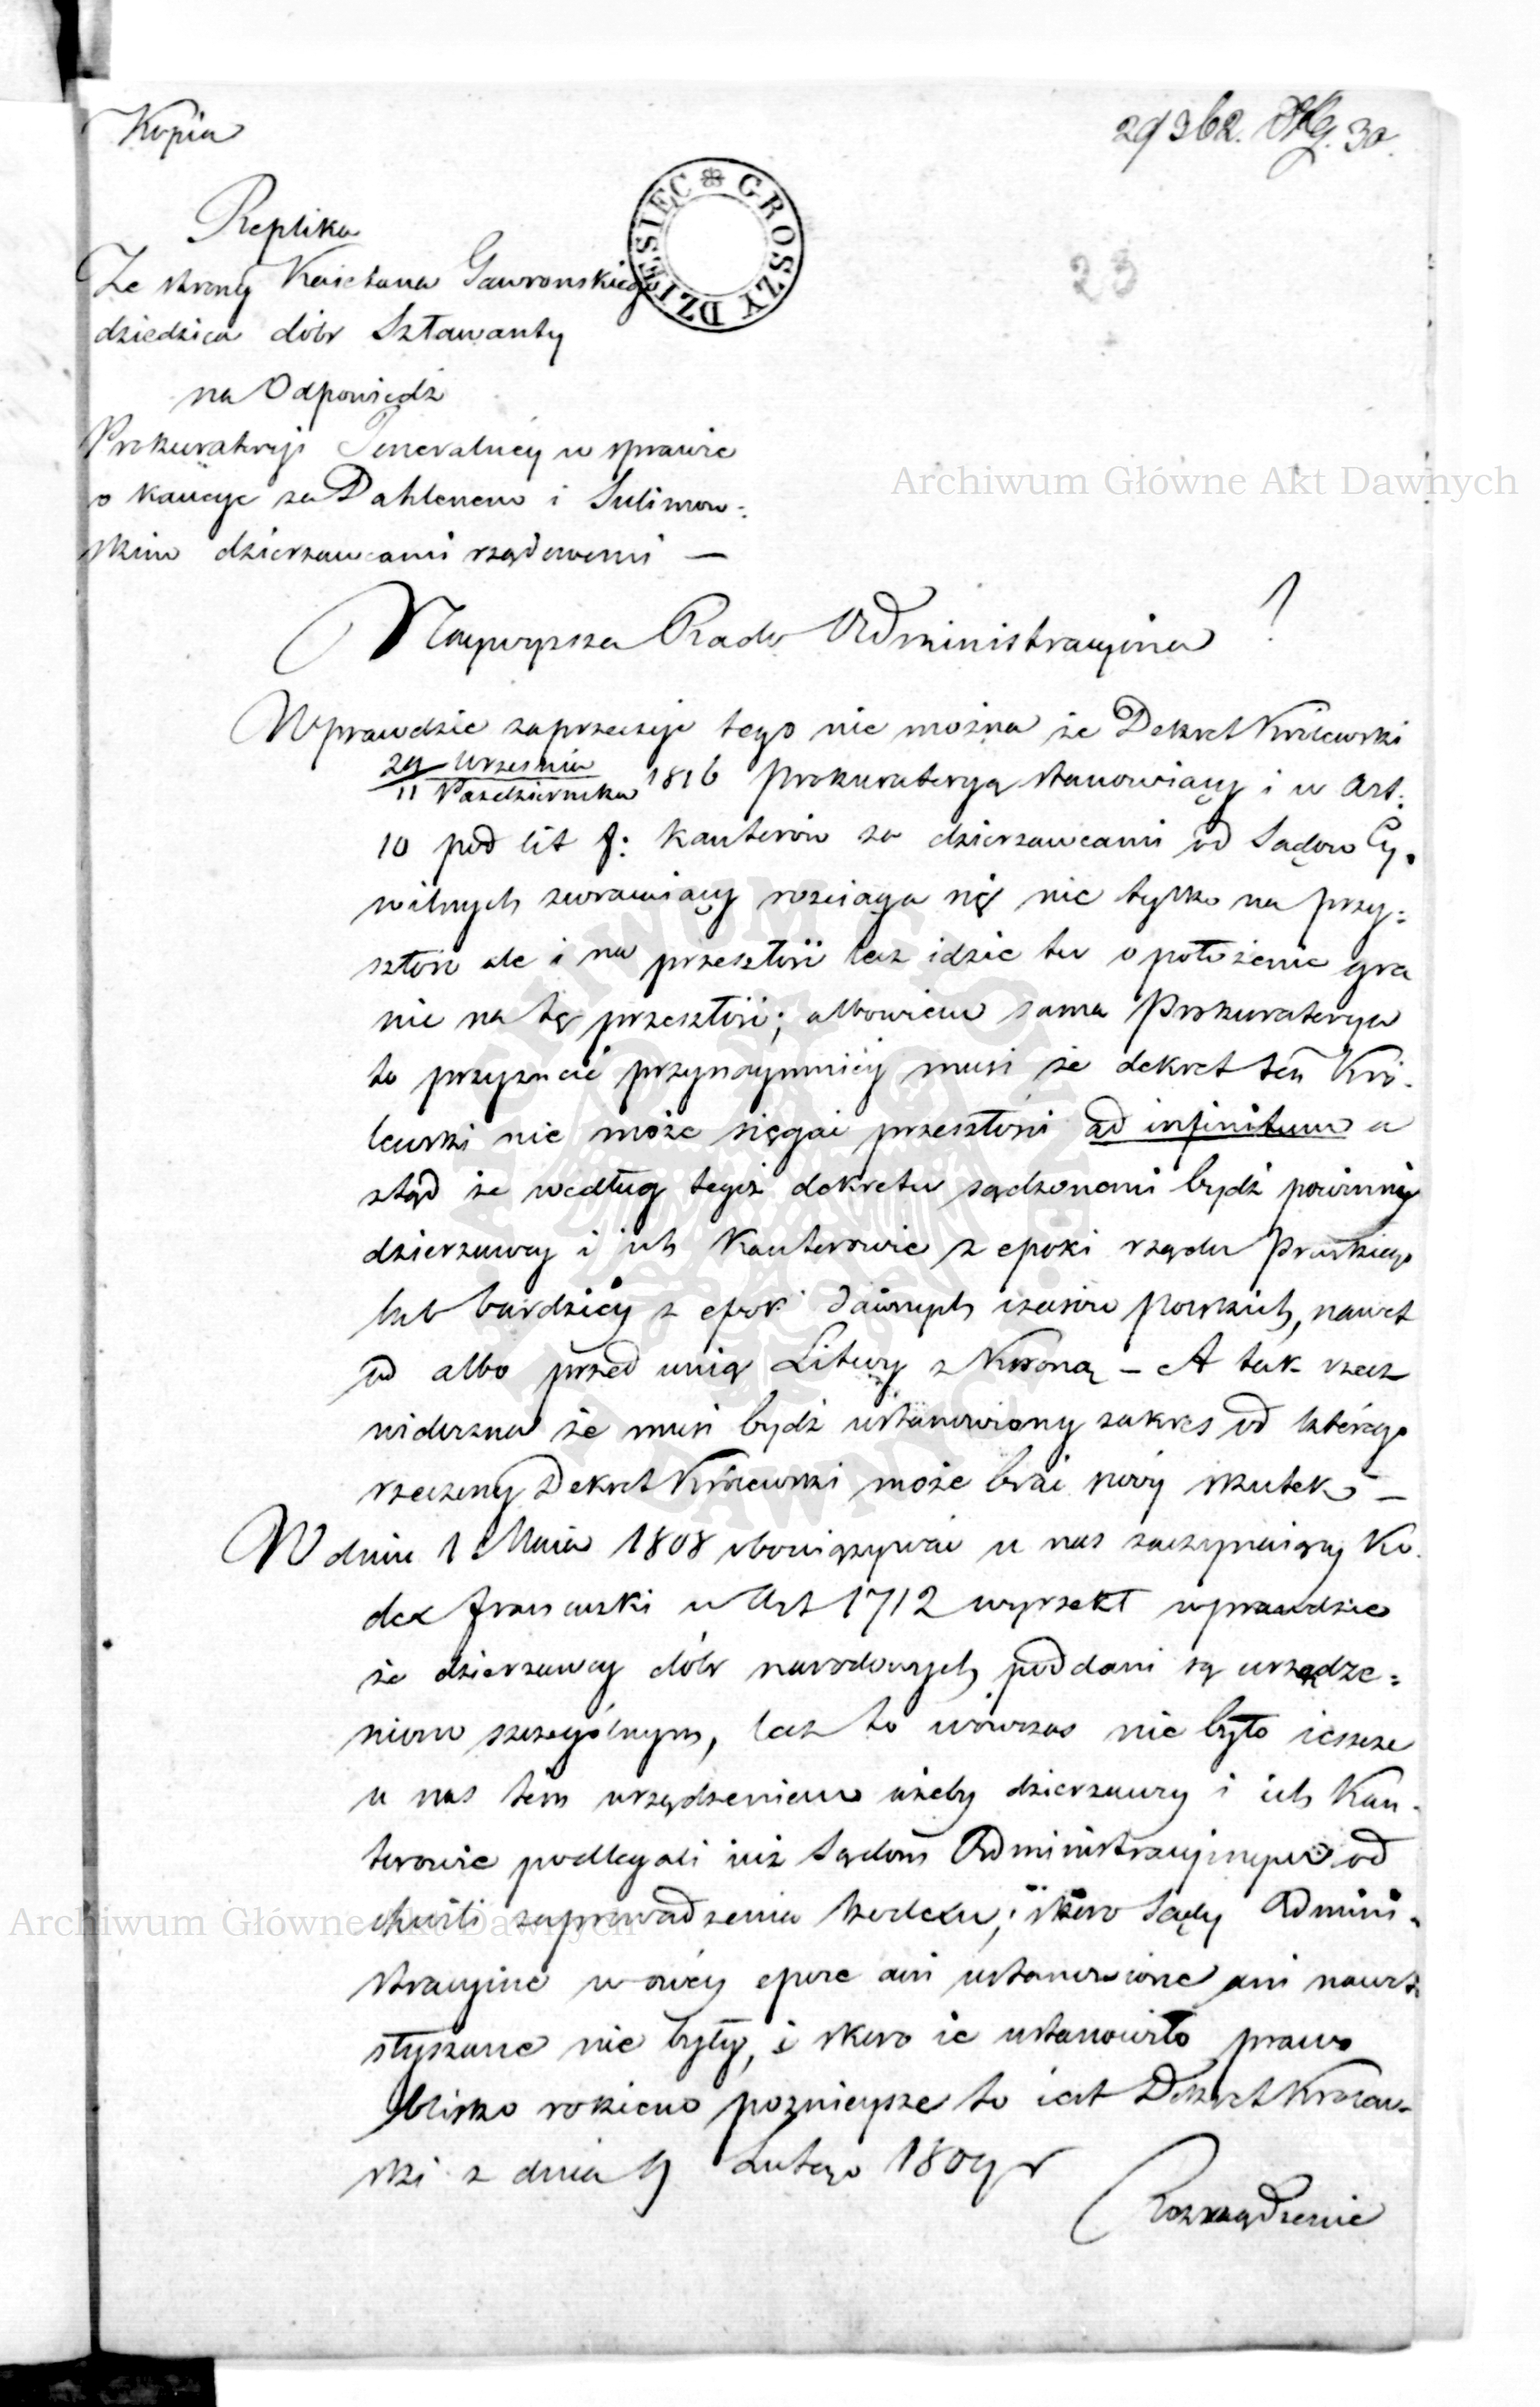 Kopia
29362. 30.
Replika
Ze strony Kaietana Gawronskiego
dziedzica dóbr Sztawanty
DZIESIĘC GROSZY
23
na Odpowiedź
Prokuratoryi Jeneralnéy w sprawie
o kaucye za Dahlenem i Sulimow:
skim dzierzawcami rządowemi —
Naywyzsza Rado Administracyina!
Wprawdzie zaprzeczyć tego nie można że Dekret Królewski
29 Wrzesnia
11 Pazdziernika 1816 Prokuratoryą stanowiący i w Art:
10 pod lit f: kautorów za dzierzawcami od Sądów Cy.
wilnych zwracaiący rozciąga się nie tylko na przy:
szłość ale i na przeszłość lecz idzie tu o położenie gra
nic na tę przeszłość; albowiem sama Prokuratorya
to przyznać przynaymniéy musi że dekret ten Kró.
lewski nie może sięgać przeszłości ad infinitum a
ztąd że według tegoż dekretu sądzonemi bydź powinni
dzierzawcy i ich Kautorowie z epoki rządu Pruskiego
lub bardziéy z epok dawnych czasów Polskich, nawet
od albo przed unią Litwy z Koroną — A tak rzecz
widoczna że musi bydź ustanowiony zakres od którego
rzeczony Dekret Królewski może brać swóy skutek —
W dniu 1 Maia 1808 obowiązywać u nas zaczynaiący Ko.
dex francuski w Art 1712 wyrzekł wprawdzie
że dzierzawcy dóbr narodowych poddani są urządze:
niom szczególnym, lecz to wówczas nie było ieszcze
u nas tem urządzeniem ażeby dzierzawcy i ich Kau.
torowie podlegali iuż Sądom Administracyinym od
chwili zaprowadzenia kodexu; skoro Sądy Admini.
stracyine w owéy epoce ani ustanowione ani nawet
słyszane nie były, i skoro ie ustanowiło prawo
blisko rokiem poznieysze to iest Dekret Królew.
ski z dnia 9 Lutego 1809 r
Rozrządzenie
Archiwum Główne Akt Dawnych
Archiwum Główne Akt Dawnych